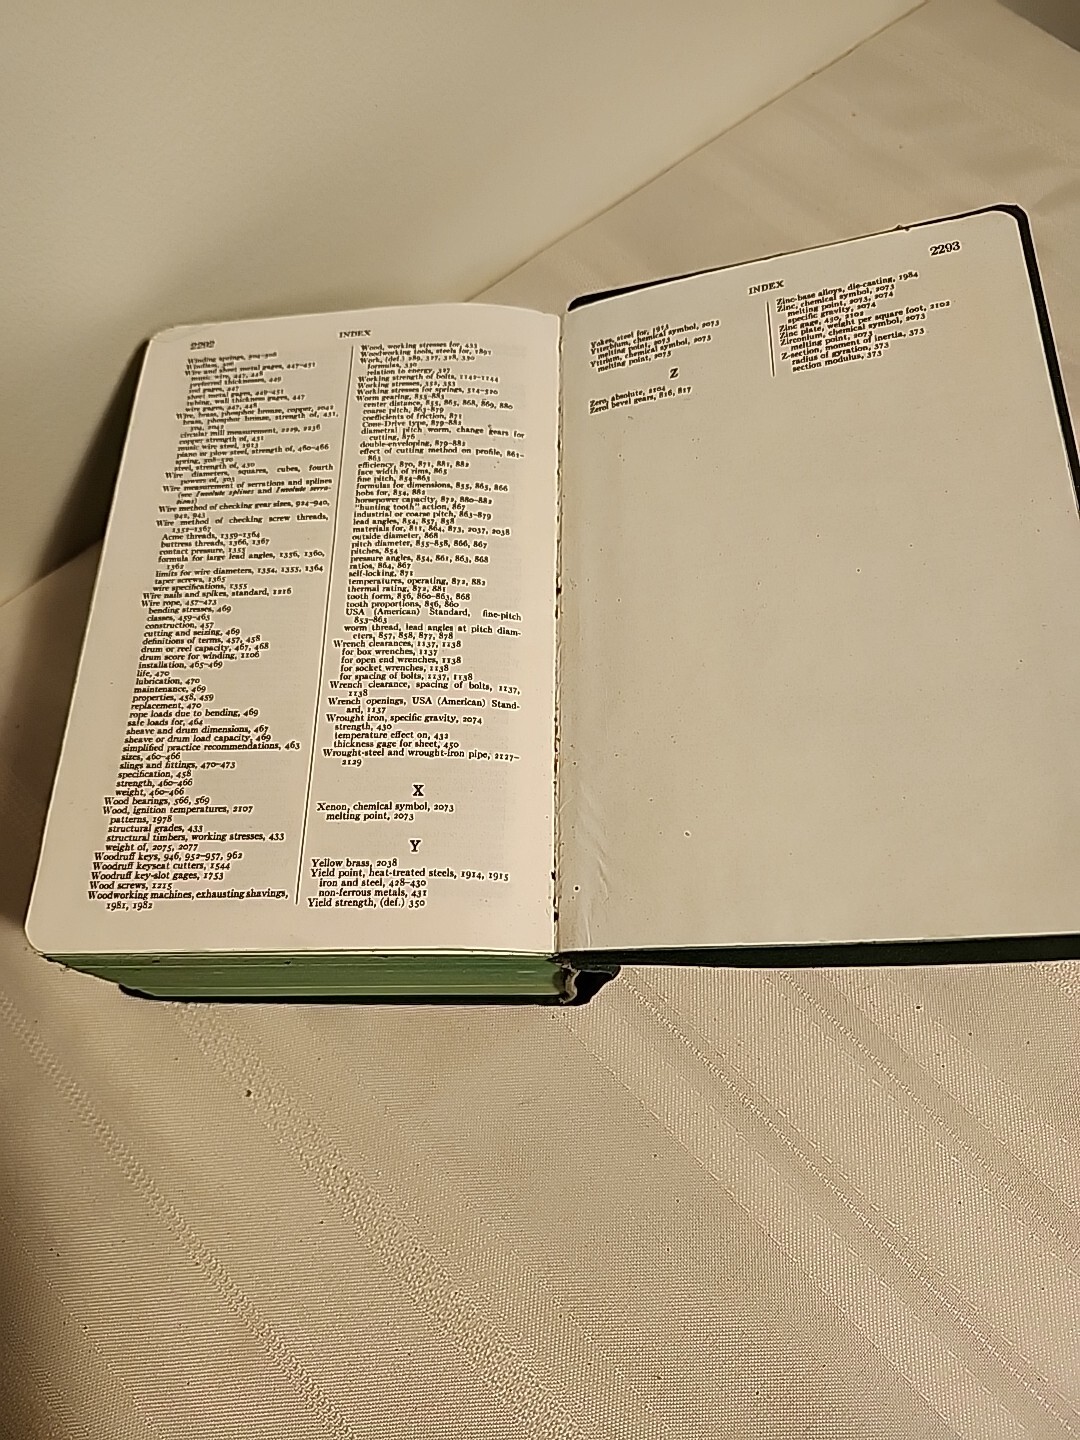 2292
INDEX
Winding springs, 504-508
Windlass, 306
Wire and sheet metal gages, 447-451
music wire, 447, 448
preferred thicknesses, 449
rod gages, 447
sheet metal gages, 449-451
tubing, wall thickness gages, 447
wire gages, 447, 448
Wire, brass, phosphor bronze, copper, 2042
brass, phosphor bronze, strength of, 431,
504, 2042
circular mill measurement, 2229, 2236
copper strength of, 431
music wire steel, 1913
piano or plow steel, strength of, 460-466
spring, 508-520
steel, strength of, 430
Wire diameters, squares, cubes, fourth
powers of, 503
Wire measurement of serrations and splines
(see Involute splines and Involute serra-
tions)
Wire method of checking gear sizes, 924-940,
942, 943
Wire method of checking screw threads,
1352-1367
Acme threads, 1359-1364
buttress threads, 1366, 1367
contact pressure, 1353
formula for large lead angles, 1356, 1360,
1362
limits for wire diameters, 1354, 1355, 1364
taper screws, 1365
wire specifications, 1355
Wire nails and spikes, standard, 1216
Wire rope, 457-473
bending stresses, 469
classes, 459-463
construction, 457
cutting and seizing, 469
definitions of terms, 457, 458
drum or reel capacity, 467, 468
drum score for winding, 1106
installation, 465-469
life, 470
lubrication, 470
maintenance, 469
properties, 458, 459
replacement, 470
rope loads due to bending, 469
safe loads for, 464
sheave and drum dimensions, 467
sheave or drum load capacity, 469
simplified practice recommendations, 463
sizes, 460-466
slings and fittings, 470-473
specification, 458
strength, 460-466
weight, 460-466
Wood bearings, 566, 569
Wood, ignition temperatures, 2107
patterns, 1978
structural grades, 433
structural timbers, working stresses, 433
weight of, 2075, 2077
Woodruff keys, 946, 952-957, 962
Woodruff keyseat cutters, 1544
Woodruff key-slot gages, 1753
Wood screws, 1215
Woodworking machines, exhausting shavings,
1981, 1982
Wood, working stresses for, 433
Woodworking tools, steels for, 1891
Work, (def.) 289, 317, 318, 330
formulas, 330
relation to energy, 327
Working strength of bolts, 1142-1144
Working stresses, 352, 353
Working stresses for springs, 514-520
Worm gearing, 853-883
center distance, 855, 865, 868, 869, 880
coarse pitch, 863-879
coefficients of friction, 871
Cone-Drive type, 879-882
diametral pitch worm, change gears for
cutting, 876
double-enveloping, 879-882
effect of cutting method on profile, 861-
863
efficiency, 870, 871, 881, 882
face width of rims, 865
fine pitch, 854-863
formulas for dimensions, 855, 865, 866
hobs for, 854, 882
horsepower capacity, 872, 880-882
"hunting tooth" action, 867
industrial or coarse pitch, 863-879
lead angles, 854, 857, 858
materials for, 811, 864, 873, 2037, 2038
outside diameter, 868
pitch diameter, 855-858, 866, 867
pitches, 854
pressure angles, 854, 861, 863, 868
ratios, 864, 867
self-locking, 871
temperatures, operating, 872, 882
thermal rating, 872, 881
tooth form, 856, 860-863, 868
tooth proportions, 856, 860
USA (American) Standard, fine-pitch
853-863
worm thread, lead angles at pitch diam-
eters, 857, 858, 877, 878
Wrench clearances, 1137, 1138
for box wrenches, 1137
for open end wrenches, 1138
for socket wrenches, 1138
for spacing of bolts, 1137, 1138
Wrench clearance, spacing of bolts, 1137,
1138
Wrench openings, USA (American) Stand-
ard, 1137
Wrought iron, specific gravity, 2074
strength, 430
temperature effect on, 432
thickness gage for sheet, 450
Wrought-steel and wrought-iron pipe, 2127-
2129
X
Xenon, chemical symbol, 2073
melting point, 2073
Y
Yellow brass, 2038
Yield point, heat-treated steels, 1914, 1915
iron and steel, 428-430
non-ferrous metals, 431
Yield strength, (def.) 350
INDEX
2293
Yokes, steel for, 1915
Ytterbium, chemical symbol, 2073
melting point, 2073
Yttrium, chemical symbol, 2073
melting point, 2073
Z
Zero, absolute, 2104
Zerol bevel gears, 816, 817
Zinc-base alloys, die-casting, 1984
Zinc, chemical symbol, 2073
melting point, 2073, 2074
specific gravity, 2074
Zinc gage, 450, 2102
Zinc plate, weight per square foot, 2102
Zirconium, chemical symbol, 2073
melting point, 2073
Z-section, moment of inertia, 373
radius of gyration, 373
section modulus, 373